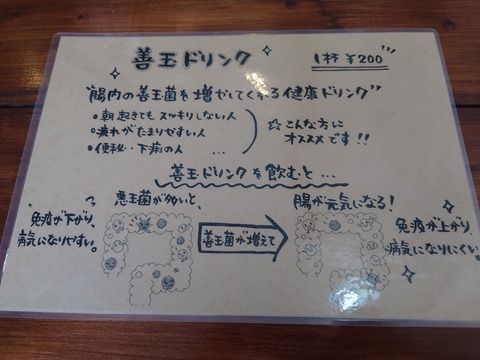 善玉ドリンク
1杯 ¥200
"腸内の善玉菌を増やしてくれる健康ドリンク"
・朝起きてもスッキリしない人
・疲れがたまりやすい人
・便秘・下痢の人 ...
☆こんな方に
オススメです!!
善玉ドリンクを飲むと...
悪玉菌が多いと、
免疫が下がり、
病気になりやすい。
善玉菌が増えて
腸が元気になる!
免疫が上がり、
病気になりにくい。